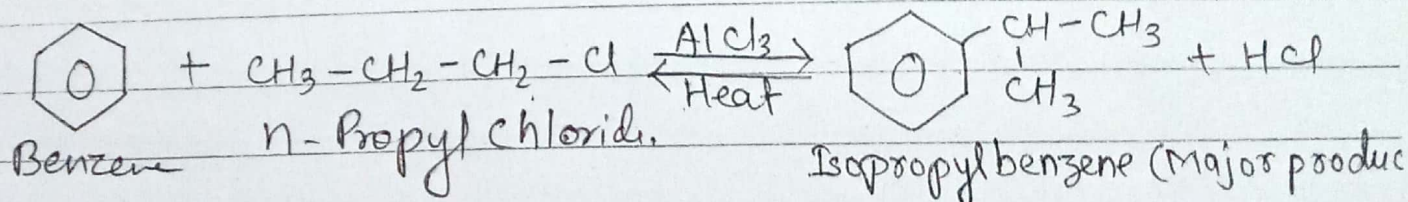 + CH3-CH2-CH2-Cl AlCl3 Heat CH-CH3 + HCl
CH3
Benzene n-Propyl Chloride. Isopropylbenzene (Major produc